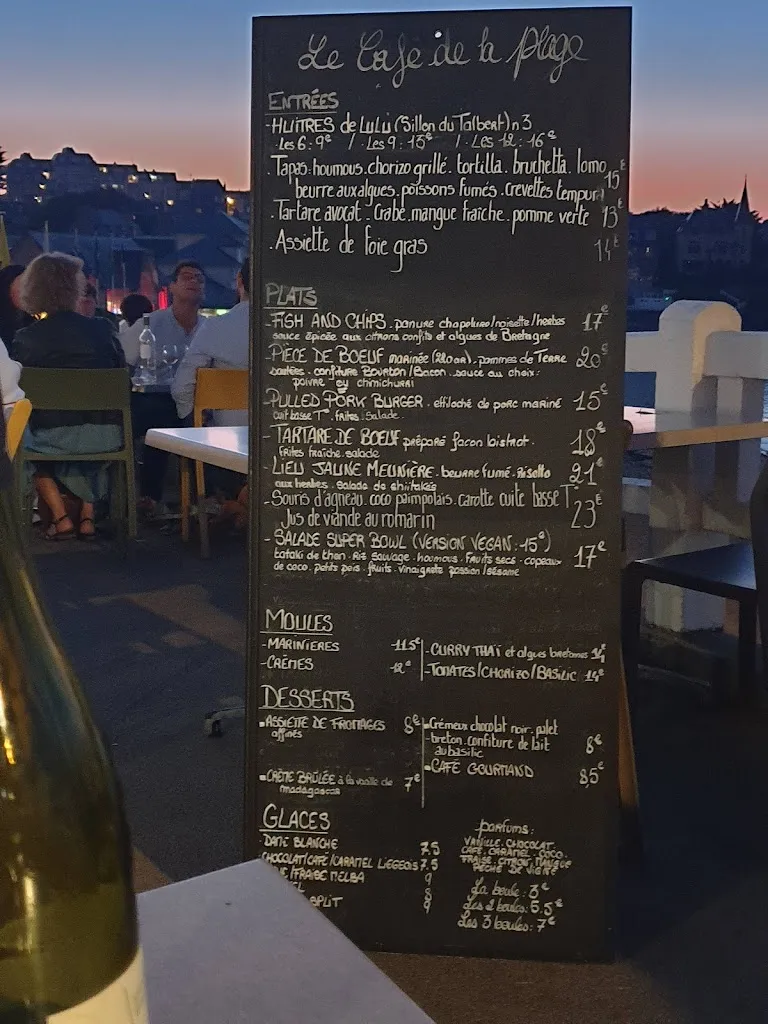 Le Café de la plage
ENTRÉES
-HUITRES de LULU (Sillon du Talbert) n3
Les 6: 9€ / Les 9: 13€ / Les 12: 16€
Tapas. houmous. chorizo grillé. tortilla. bruchetta. lomo 15€
beurre aux algues. poissons fumés. crevettes tempura
. Tartare avocat. Crabe. mangue fraîche. pomme verte 13€
. Assiette de foie gras 14€
PLATS
-FISH AND CHIPS. panure chapelure/noisette/herbes 17€
sauce épicée aux citrons confits et algues de Bretagne
-PIÈCE DE BOEUF marinée (220GR). pommes de Terre 20€
sautées. confiture Bourbon/Bacon. sauce au choix:
poivre ou chimichurri
-PULLED PORK BURGER. effiloché de porc mariné 15€
cuit basse T°. frites. salade.
-TARTARE DE BOEUF préparé façon bistrot. 18€
frites fraîche. salade
-LIEU JAUNE MEUNIÈRE. beurre fumé. Risotto 21€
aux herbes. salade de shiitakés
-Souris d'agneau. coco paimpolais. carotte cuite basse T° 23€
Jus de viande au romarin
-SALADE SUPER BOWL (VERSION VEGAN: 15€) 17€
tataki de thon. Riz sauvage. houmous. fruits secs. copeaux
de coco. petits pois. fruits. vinaigrette passion/sésame
MOULES
-MARINIERES 11.5€
-CRÈMES 12€
-CURRY THAÏ et algues bretonnes 14€
-TOMATES/CHORIZO/BASILIC 14€
DESSERTS
-ASSIETTE DE FROMAGES 8€
affinés
-CRÈME BRÛLÉE à la vanille de 7€
madagascar
-Crémeux chocolat noir. palet
breton. confiture de lait 8€
au basilic
-CAFÉ GOURMAND 8,5€
GLACES
DAME BLANCHE 7.5
CHOCOLAT/CAFÉ/CARAMEL LIEGEOIS 7.5
/FRAISE MELBA 9
8
SPLIT 9
parfums:
VANILLE. CHOCOLAT
CAFÉ. CARAMEL. COCO.
FRAISE. CITRON. MANGUE
PÊCHE DE VIGNE
La boule: 3€
Les 2 boules: 5.5€
Les 3 boules: 7€